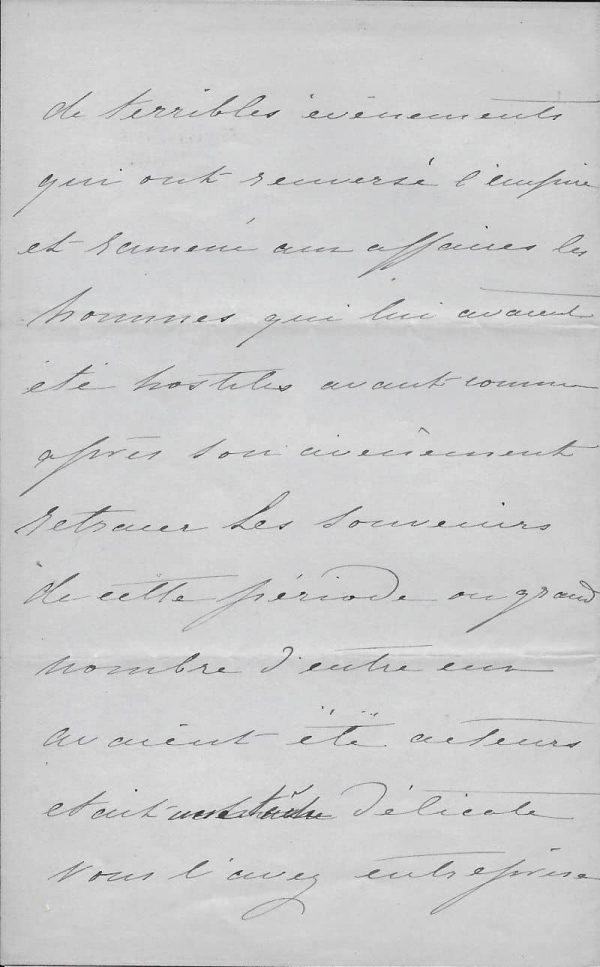 de terribles évènements
qui ont renversé l'empire
et ramené aux affaires les
hommes qui lui avaient
été hostiles avant comme
après son avènement
retracer les souvenirs
de cette période ou grand
nombre d'entre eux
avaient été acteurs
etait une tâche délicate
vous l'avez entreprise